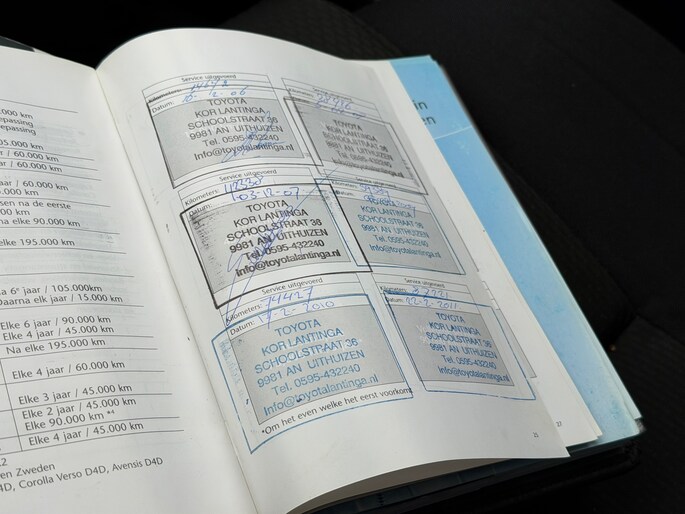 000 km
epassing
epassing
05.000 km
aar / 60.000 km
/ 60.000 km
aar / 60.000 km
.000 km
sen na de eerste
000 km
na elke 90.000 km
elke 195.000 km
a 6e jaar / 105.000km
Daarna elk jaar / 15.000 km
Elke 6 jaar / 90.000 km
Elke 4 jaar / 45.000 km
Na elke 195.000 km
Elke 4 jaar / 60.000 km
Elke 3 jaar / 45.000 km
Elke 2 jaar / 45.000 km
Elke 90.000 km *4
Elke 4 jaar / 45.000 km
en Zweden
4D, Corolla Verso D4D, Avensis D4D
Service uitgevoerd
Kilometers:
Datum:
TOYOTA
KOR LANTINGA
SCHOOLSTRAAT 36
9981 AN UITHUIZEN
Tel. 0595-432240
Info@toyotalantinga.nl
TOYOTA
KOR LANTINGA
SCHOOLSTRAAT 36
9981 AN UITHUIZEN
Tel. 0595-432240
Info@toyotalantinga.nl
Service uitgevoerd
Kilometers:
Datum: 03-12-07
TOYOTA
KOR LANTINGA
SCHOOLSTRAAT 36
9981 AN UITHUIZEN
Tel. 0595-432240
Info@toyotalantinga.nl
KOR LANTINGA
SCHOOLSTRAAT 36
9981 AN UITHUIZEN
Tel. 0595-432240
Info@toyotalantinga.nl
Service uitgevoerd
Kilometers: 74427
Datum: 2-2010
TOYOTA
KOR LANTINGA
SCHOOLSTRAAT 36
9981 AN UITHUIZEN
Tel. 0595-432240
Info@toyotalantinga.nl
Service uitgevoerd
Kilometers:
Datum: 22-2-2011
TOYOTA
KOR LANTINGA
SCHOOLSTRAAT 36
9981 AN UITHUIZEN
Tel. 0595-432240
Info@toyotalantinga.nl
*Om het even welke het eerst voorkomt
21
27
in
en